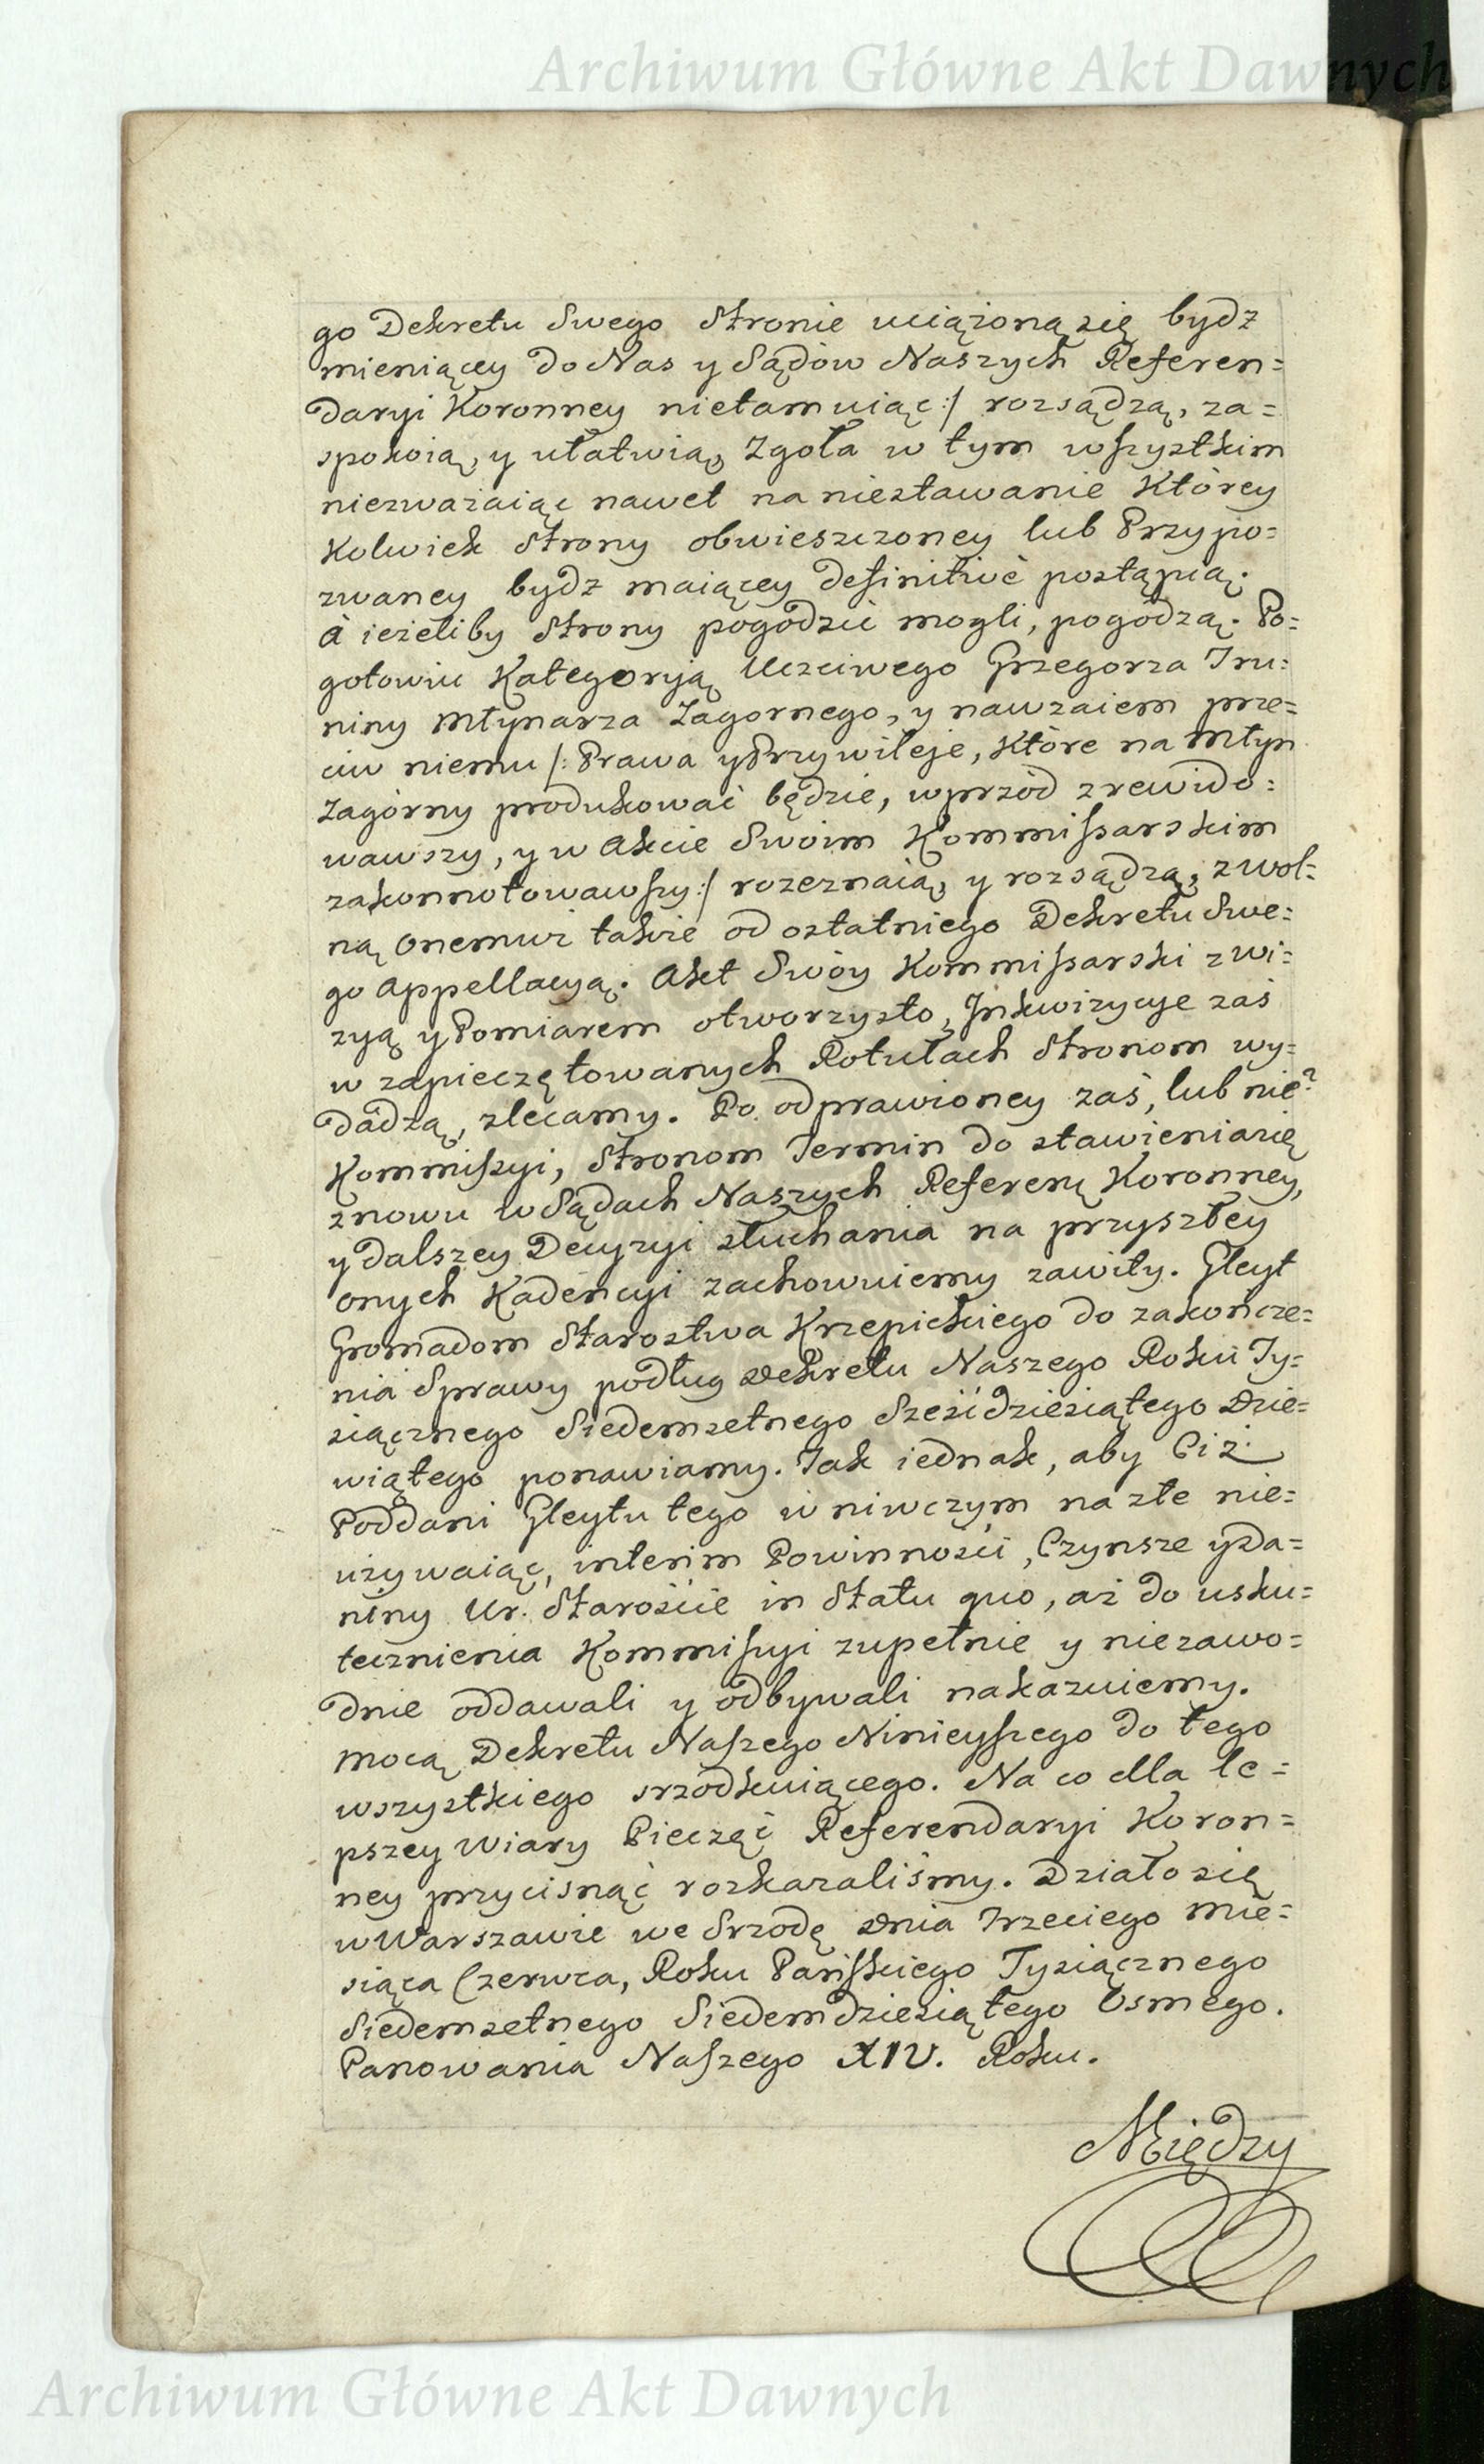 Archiwum Główne Akt Dawnych
go Dekretu Swego Stronie uciążoną się bydź
mieniącey do Nas y Sądów Naszych Referen=
daryi Koronney nietamuiąc:/ rozsądzą, za=
spokoią, y ułatwią, Zgoła w tym wszystkim
niezważaiąc nawet na niestawanie Którey
Kolwiek Strony obwieszczoney lub Przypo=
zwaney bydź maiącey definitivè postąpią.
A ieżeliby Strony pogodzić mogli, pogodzą. Po=
gotowiu Kategoryią Uczciwego Grzegorza Iru=
niny Młynarza Zagornego, y nawzaiem prze=
ciw niemu /: Prawa y Przywileje, Które na Młyn
Zagórny produkować będzie, wprzód zrewido=
wawszy, y w Akcie Swoim Kommissarskim
zakonnotowawszy:/ rozeznaią, y rozsądzą, z wol=
ną onemuż także od ostatniego Dekretu Swe=
go Appellacyą. Akt Swóy Kommissarski z wi=
zyą y Pomiarem otworzysto, Inkwizycye zaś
w zapieczętowanych Rotułach Stronom wy=
dadzą, zlecamy. Po odprawioney zaś, lub nie?
Kommissyi, Stronom Termin do stawienia się
znowu w Sądach Naszych Referen: Koronney,
y dalszey Decyzyi słuchania na przyszłey
onych Kadencyi zachowuiemy zawity. Gleyt
Gromadom Starostwa Krzepickiego do zakończe=
nia Sprawy podług Dekretu Naszego Roku Ty=
siącznego Siedemsetnego Sześćdziesiątego Dzie=
wiątego ponawiamy. Tak iednak, aby Ciż
Poddani Gleytu tego w niwczym na złe nie=
używaiąc, interim Powinności, Czynsze y Da=
niny Ur. Starościе in Statu quo, aż do usku=
tecznienia Kommissyi zupełnie y niezawo=
dnie oddawali y odbywali nakazuiemy.
Mocą Dekretu Naszego Ninieyszego do tego
wszystkiego srzodkuiącego. Na co dla le=
pszey Wiary Pieczęć Referendaryi Koron=
ney przycisnąć rozkazaliśmy. Działo się
w Warszawie we Srzodę Dnia Trzeciego Mie=
siąca Czerwca, Roku Pańskiego Tysiącznego
Siedemsetnego Siedemdziesiątego Osmego.
Panowania Naszego XIV. Roku.
Między
Archiwum Główne Akt Dawnych